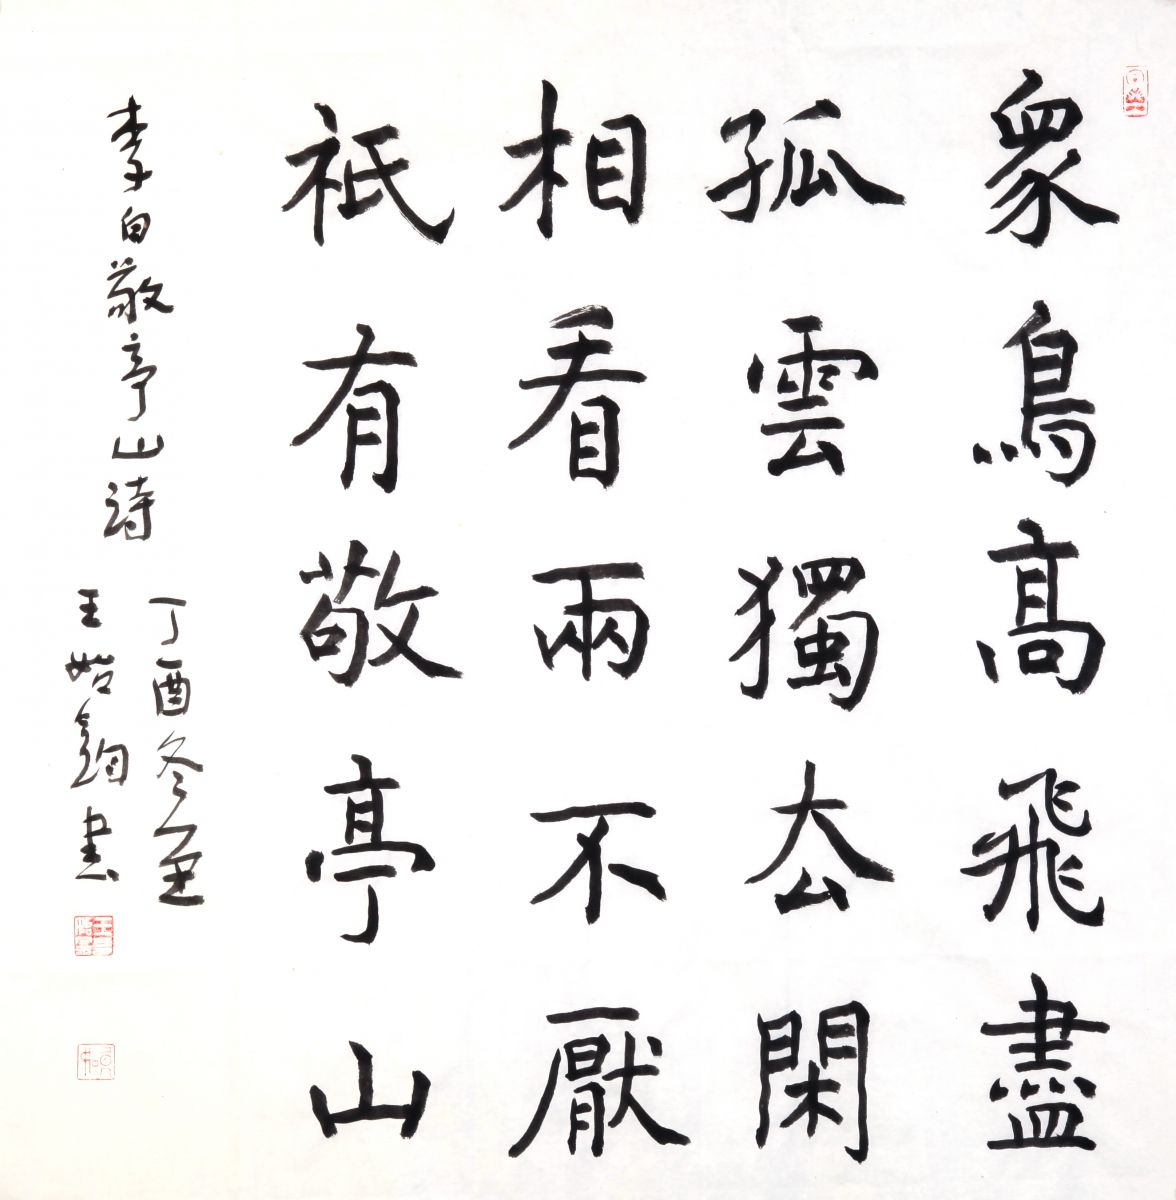 眾鳥高飛盡
孤雲獨厺閑
相看兩不厭
祇有敬亭山
李白敬亭山詩
丁酉冬至
王始鈞書